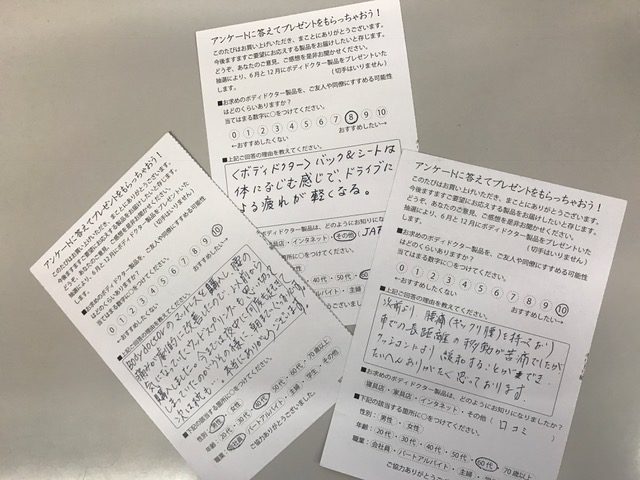 アンケートに答えてプレゼントをもらっちゃおう！
このたびはお買い上げいただき、まことにありがとうございます。
今後ますますご要望にお応えする製品をお届けしたいと存じます。
どうぞ、あなたのご意見、ご感想を是非お聞かせください。
抽選により、6月と12月にボディドクター製品をプレゼントいた
します。 （切手はいりません）
■お求めのボディドクター製品を、ご友人や同僚にすすめる可能性
はどのくらいありますか？
当てはまる数字に○をつけてください。
0 1 2 3 4 5 6 7 8 9 10
←おすすめしたくない おすすめしたい→
■上記ご回答の理由を教えてください。
〈ボディドクター〉バック&シートは
体になじむ感じで、ドライブに
よる疲れが軽くなる。
ボディドクター製品は、どのようにお知りになり
店・インターネット・その他 JAF
40代・50代・60代
アンケートに答えてプレゼントをもらっちゃおう！
このたびはお買い上げいただき、まことにありがとうございます。
今後ますますご要望にお応えする製品をお届けしたいと存じます。
どうぞ、あなたのご意見、ご感想を是非お聞かせください。
抽選により、6月と12月にボディドクター製品をプレゼントいた
します。 （切手はいりません）
■お求めのボディドクター製品を、ご友人や同僚にすすめる可能性
はどのくらいありますか？
当てはまる数字に○をつけてください。
0 1 2 3 4 5 6 7 8 9 10
←おすすめしたくない おすすめしたい→
■上記ご回答の理由を教えてください。
Body doctorの を購入し、
気になっていたウッドスプリングも
購入しました。今までは夜中に何度も
しまっていたのがうその様に、朝まで
次は枕 。本当にありがとうございます。
■下記の該当する箇所に○をつけてください。
性別：男性・女性
年齢：20代・30代・40代・50代・60代・70歳以上
職業：会社員・パートアルバイト・主婦・学生・その他
ご協力ありがとうございました。
アンケートに答えてプレゼントをもらっちゃおう！
このたびはお買い上げいただき、まことにありがとうございます。
今後ますますご要望にお応えする製品をお届けしたいと存じます。
どうぞ、あなたのご意見、ご感想を是非お聞かせください。
抽選により、6月と12月にボディドクター製品をプレゼントいた
します。 （切手はいりません）
■お求めのボディドクター製品を、ご友人や同僚にすすめる可能性
はどのくらいありますか？
当てはまる数字に○をつけてください。
0 1 2 3 4 5 6 7 8 9 10
←おすすめしたくない おすすめしたい→
■上記ご回答の理由を教えてください。
以前より 腰痛(ギックリ腰)を持っており
車での長距離の移動が苦痛でしたが
クッションより 緩和することができ
たいへんありがたく思っております。
■お求めのボディドクター製品は、どのようにお知りになりましたか？
寝具店・家具店・インターネット・その他（ 口コミ ）
■下記の該当する箇所に○をつけてください。
性別：男性・女性
年齢：20代・30代・40代・50代・60代・70歳以上
職業：会社員・パートアルバイト・主婦
ご協力ありがとうござい